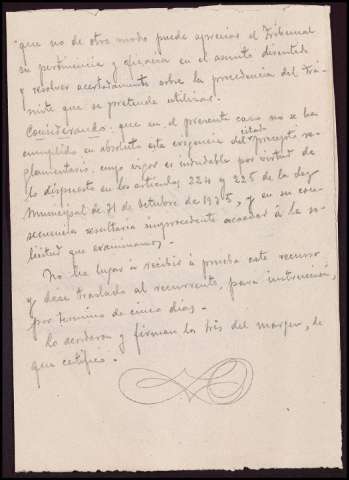 que no de otro modo puede apreciar el Tribunal
su pertinencia y eficacia en el asunto discutido
y resolver acertadamente sobre la procedencia del trá-
mite que se pretende utilizar.
Considerando: que en el presente caso no se ha
cumplido en absoluto esta exigencia del citado precepto re-
glamentario, cuyo vigor es indudable por virtud de
lo dispuesto en los artículos 224 y 225 de la Ley
Municipal de 31 de Octubre de 1935, y en su con-
secuencia resultaria improcedente acceder á la so-
licitud que examinamos.
No ha lugar á recibir á prueba este recurso
y dese traslado al recurrente para instrucción,
por termino de cinco dias.
Lo acordaron y firman los Sres del margen, de
que certifico.